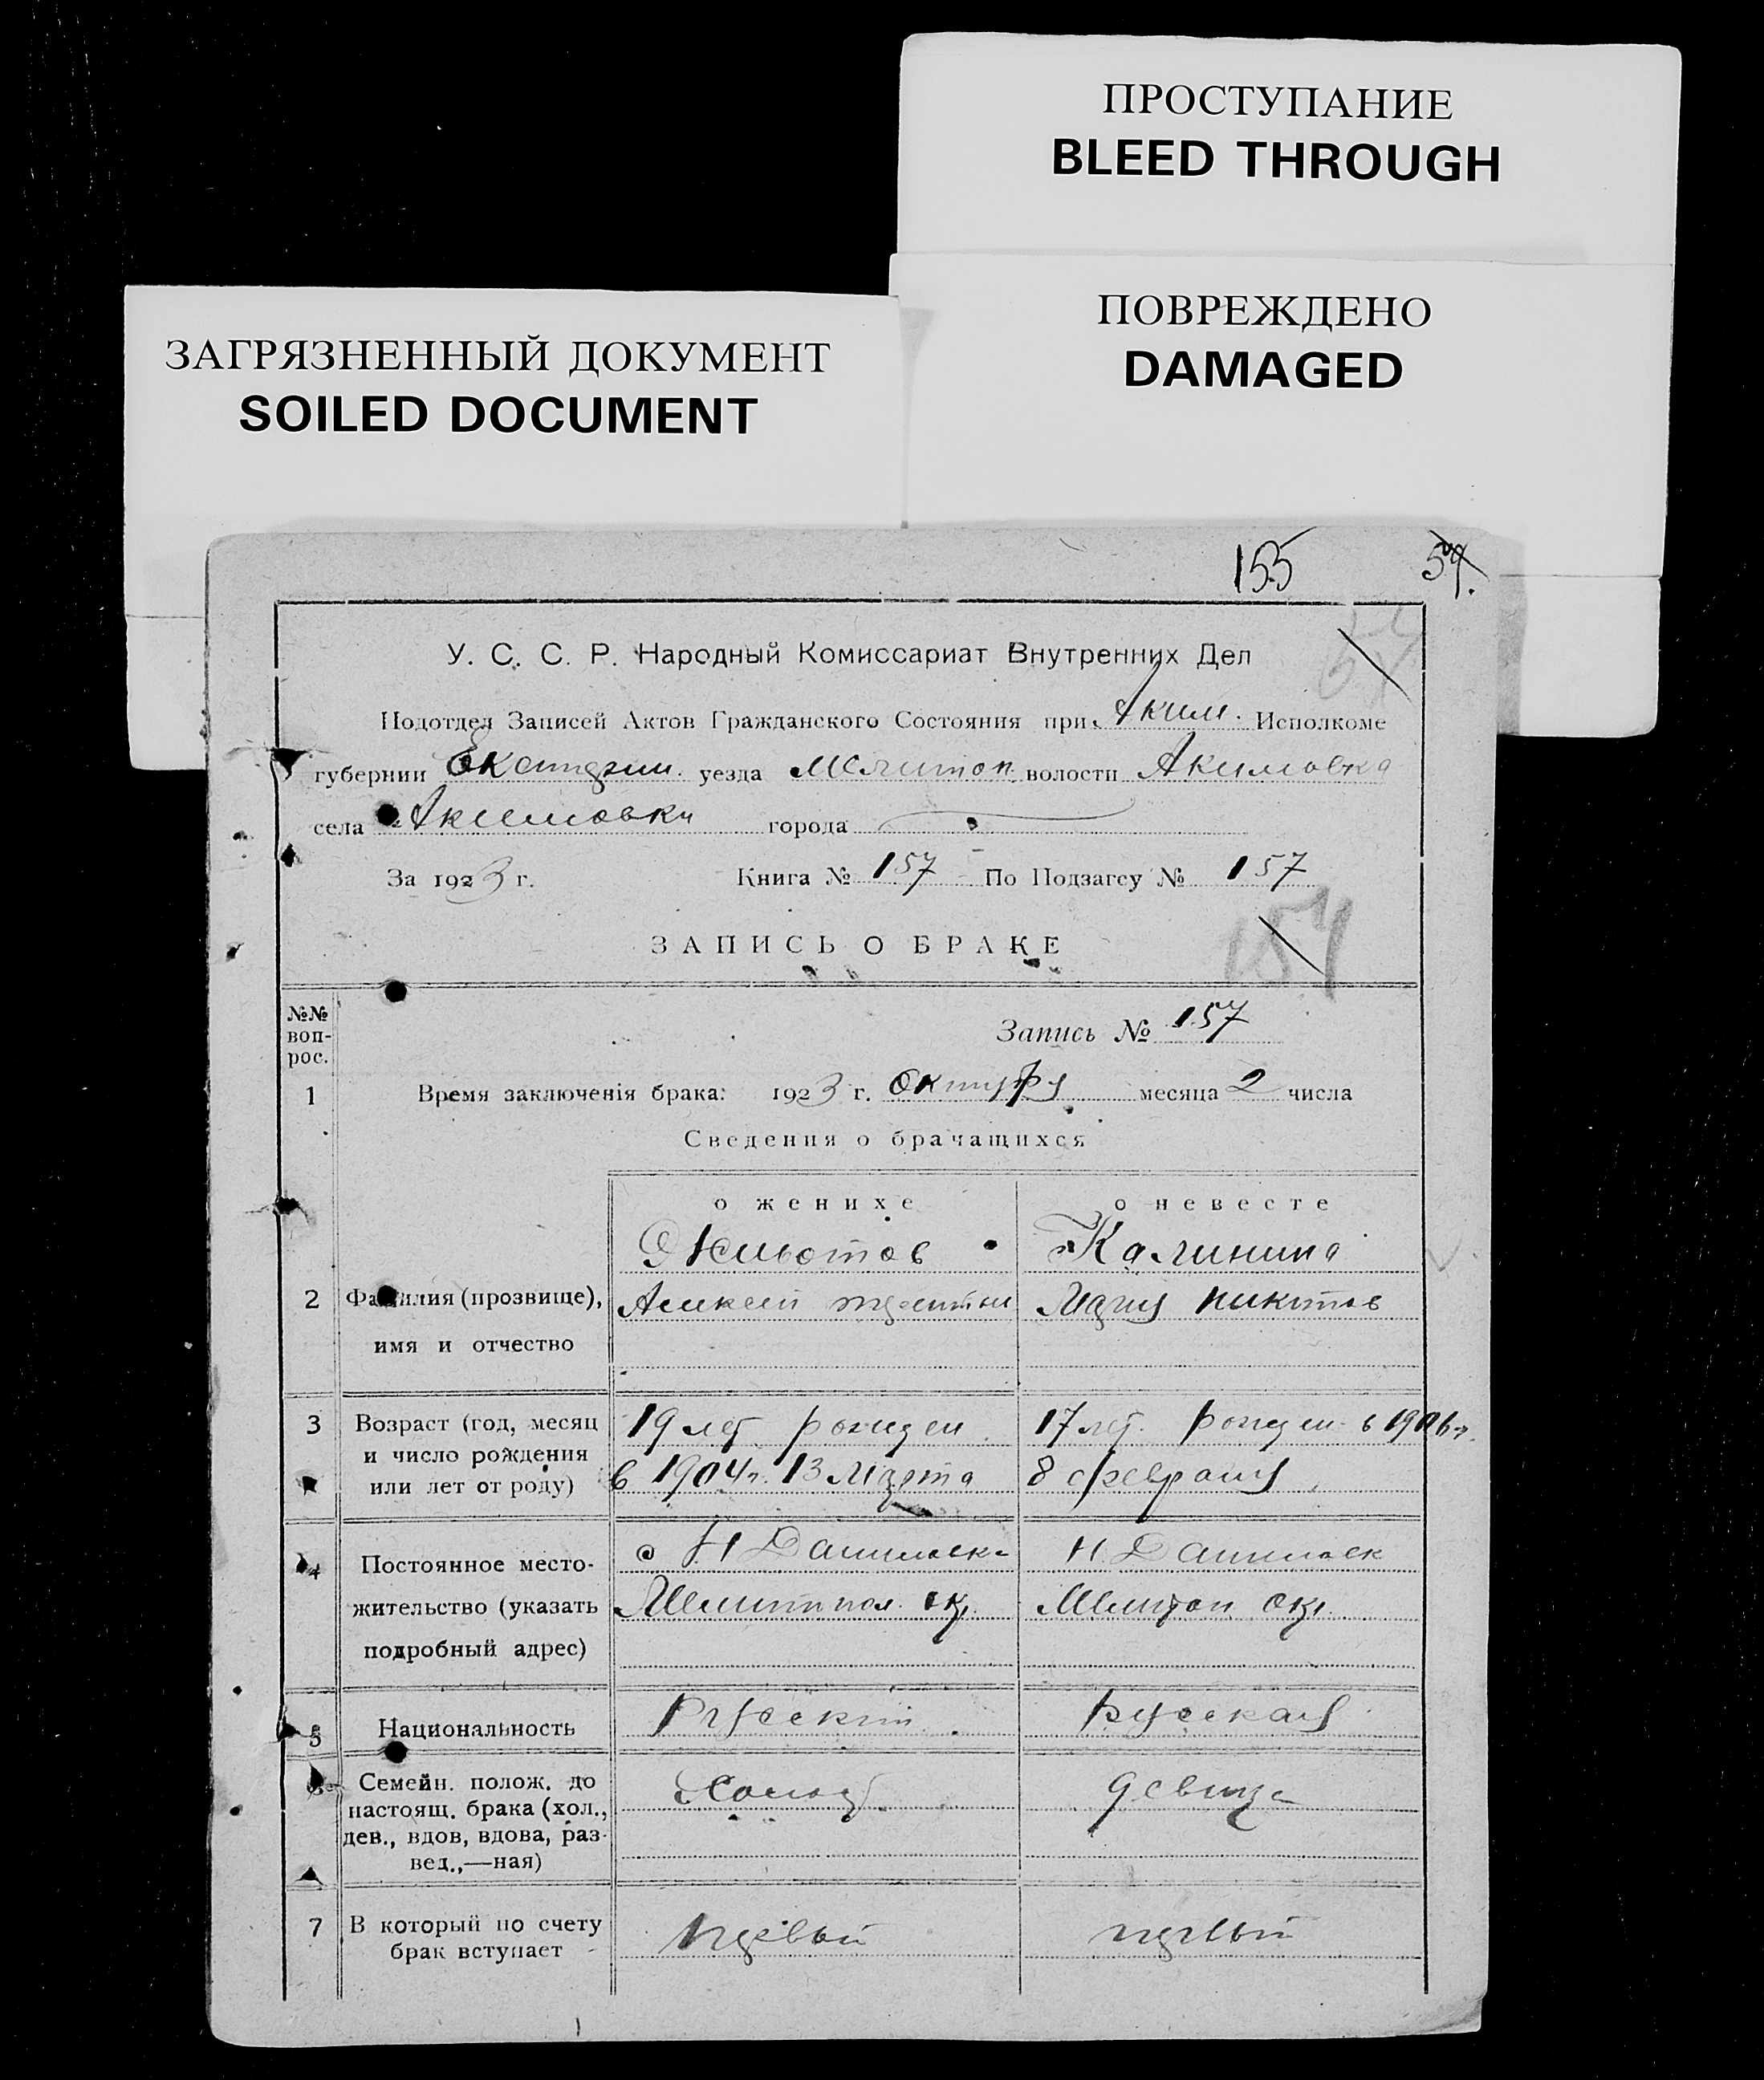 ПРОСТУПАНИЕ
BLEED THROUGH
ПОВРЕЖДЕНО
DAMAGED
ЗАГРЯЗНЕННЫЙ ДОКУМЕНТ
SOILED DOCUMENT
155 57.
У. С. С. Р. Народный Комиссариат Внутренних Дел
Подотдел Записей Актов Гражданского Состояния при Аким. Исполкоме
губернии уезда Мелитоп. волости Акимовка
села Акимовки города
За 1923 г. Книга № 157 По Подзагсу № 157
157
ЗАПИСЬ О БРАКЕ
№№ воп-рос.
Запись № 157
1 Время заключенія брака: 1923 г. месяца 2 числа
Сведения о брачащихся
о женихе о невесте
Калинина
2 Фамилия (прозвище), Мария Никитов
имя и отчество
3 Возраст (год, месяц 19 лет. рожден 17 лет. рожден в 1906 г.
и число рождения в 1904 г. 13 Марта 8 февраля
или лет от роду)
4 Постоянное место- с Н Даниловка Н. Даниловк
жительство (указать Мелитпол. окр. Мелитоп окр.
подробный адрес)
5 Национальность Русский Русская
Семейн. полож. до Холост девица
настоящ. брака (хол.,
дев., вдов, вдова, раз-
вед.,—ная)
7 В который по счету первый первый
брак вступает